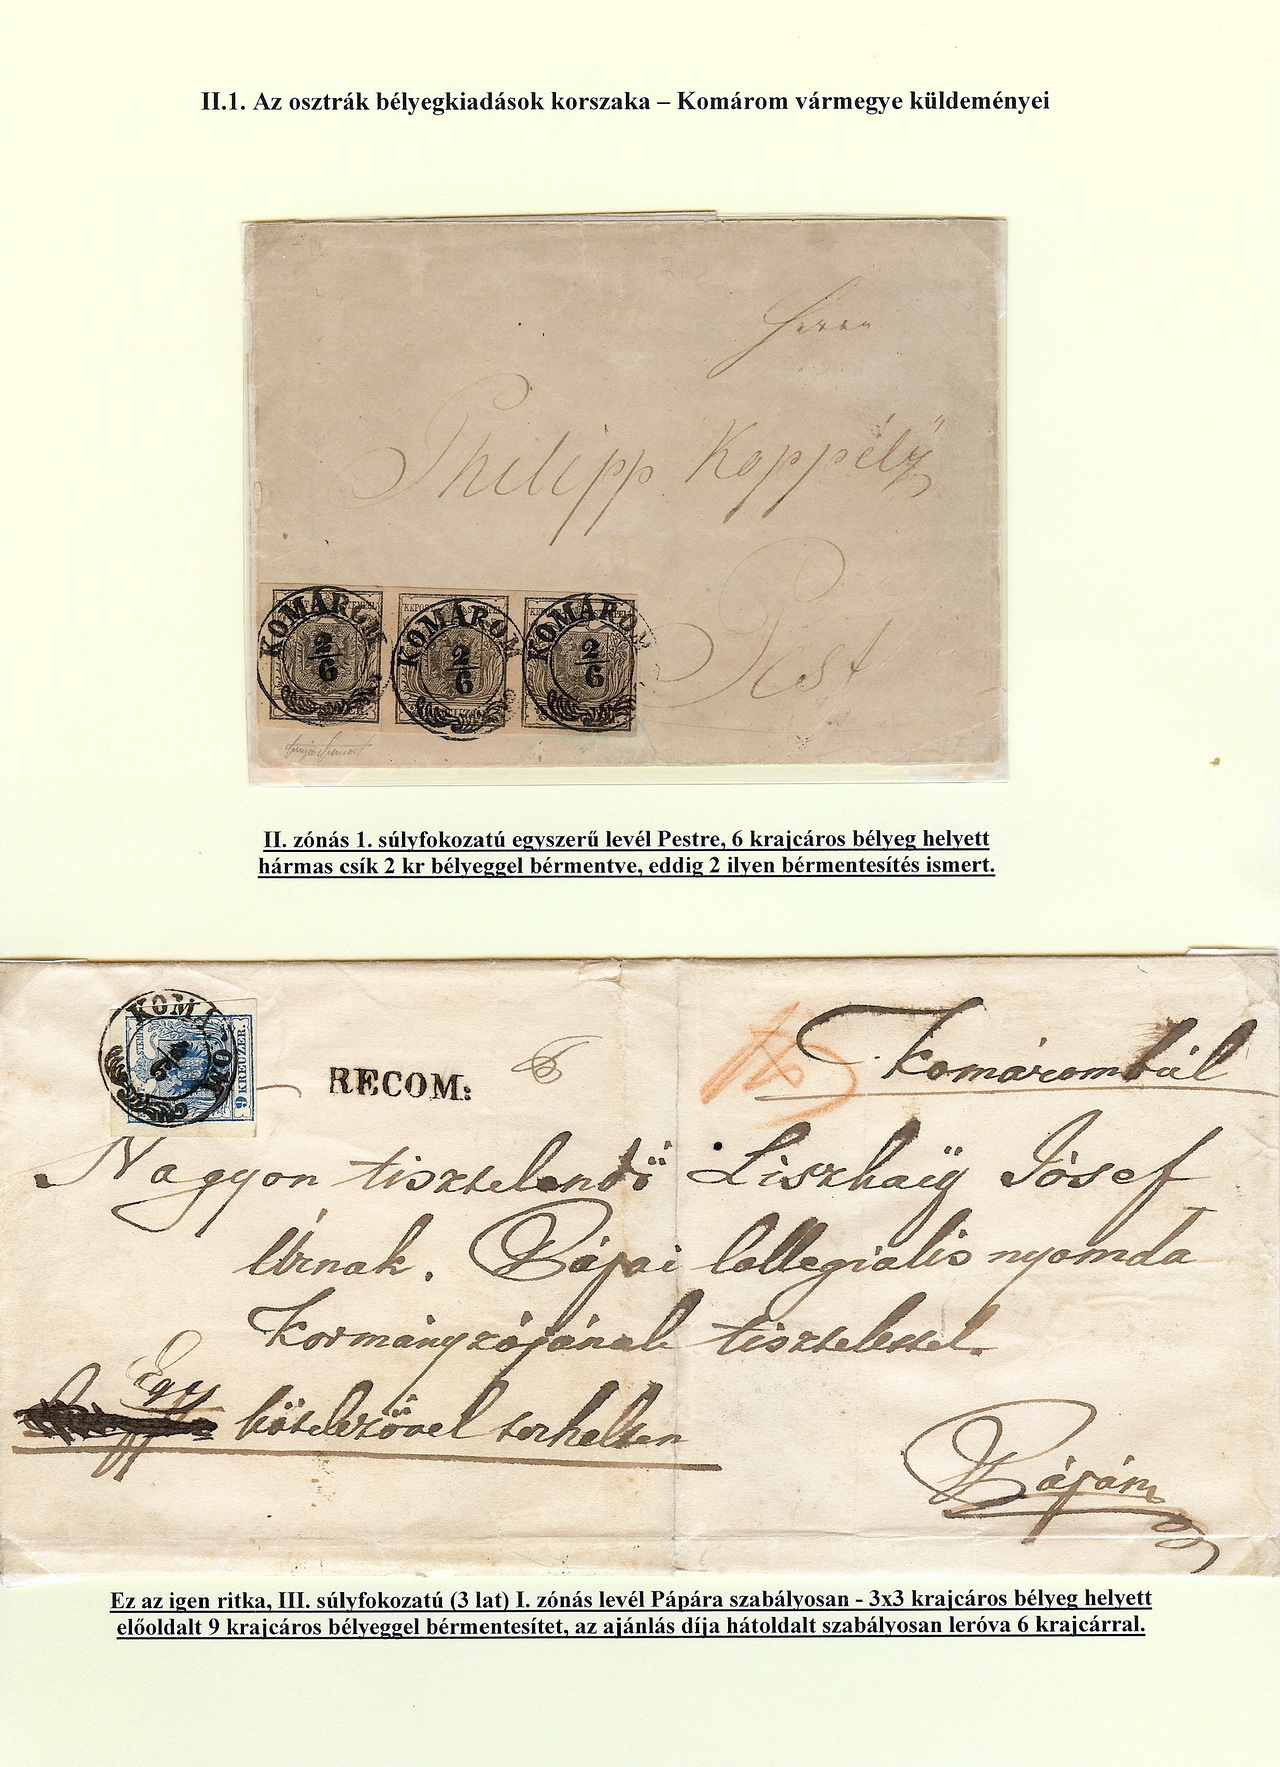 II.1. Az osztrák bélyegkiadások korszaka – Komárom vármegye küldeményei
Herrn
Philipp Koppély
Pest
KOMÁROM
2/6
KOMÁROM
2/6
KOMÁROM
2/6
II. zónás 1. súlyfokozatú egyszerű levél Pestre, 6 krajcáros bélyeg helyett
hármas csík 2 kr bélyeggel bérmentve, eddig 2 ilyen bérmentesítés ismert.
KOMÁROM
9 KREUZER.
RECOM:
Komárombúl
Nagyon tisztelendő Liszhaÿ Jósef
Úrnak. Pápai Collegialis nyomda
Kormányzójának tisztelettel.
Egy
kötelezővel terhelten
Pápán
Ez az igen ritka, III. súlyfokozatú (3 lat) I. zónás levél Pápára szabályosan - 3x3 krajcáros bélyeg helyett
előoldalt 9 krajcáros bélyeggel bérmentesítet, az ajánlás díja hátoldalt szabályosan leróva 6 krajcárral.